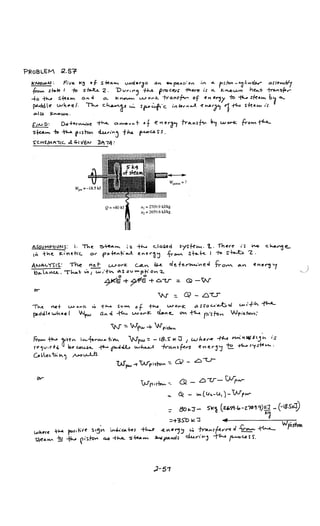 PROBLEM 2.57
KNOWN: Five kg of steam undergo an expansion in a piston-cylinder assembly
from state 1 to state 2. During the process there is a known heat transfer
to the steam and a known work transfer of energy to the steam by a
paddle wheel. The change in specific internal energy of the steam is
also known.
FIND: Determine the amount of energy transfer by work from the
steam to the piston during the process.
SCHEMATIC & GIVEN DATA:
5 kg
of steam
Wpiston = ?
Wpw = -18.5 kJ
Q = +80 kJ
u1 = 2709.9 kJ/kg
u2 = 2659.6 kJ/kg
ASSUMPTIONS: 1. The steam is the closed system. 2. There is no change
in the kinetic or potential energy from state 1 to state 2.
ANALYSIS: The net work can be determined from an energy
balance. That is, with assumption 2
ΔKE + ΔPE + ΔU = Q - W
or
W = Q - ΔU
The net work is the sum of the work associated with the
paddle wheel Wpw and the work done on the piston Wpiston:
W = Wpw + Wpiston
From the given information Wpw = -18.5 kJ, where the minus sign is
required because the paddle wheel transfers energy to the system.
Collecting results
Wpw + Wpiston = Q - ΔU
or
Wpiston = Q - ΔU - Wpw
= Q - m(u2-u1) - Wpw
= 80 kJ - 5kg (2659.6-2709.9) kJ/kg - (-18.5kJ)
= +350 kJ
Wpiston
where the positive sign indicates that energy is transferred from the
steam to the piston as the steam expands during the process.
2-57